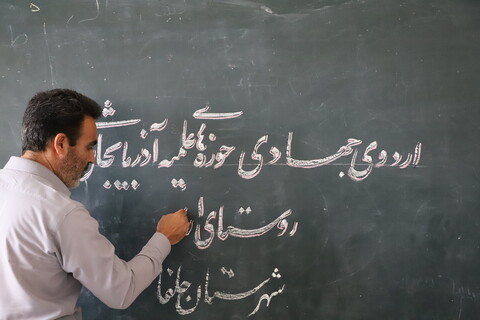 اردوی جهادی حوزه‌های علمیه آذربایجان
روستای
شهرستان جلفا